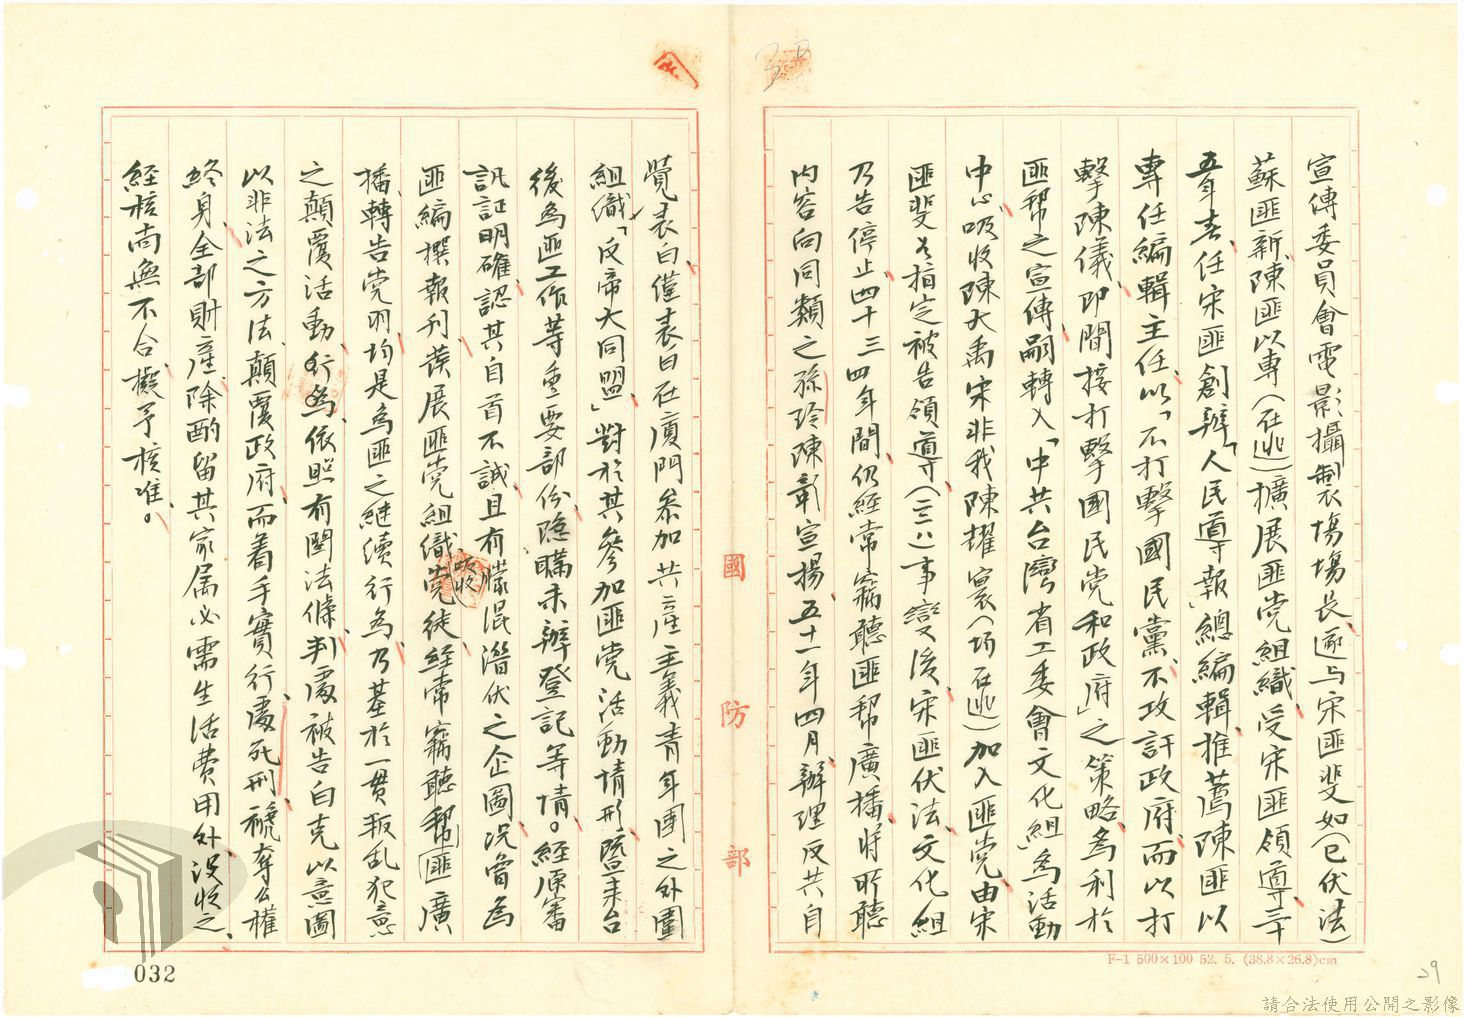 宣傳委員會電影攝製場場長、逐与宋匪斐如(已伏法)
蘇匪新、陳匪以專(在逃)擴展匪党組織、受宋匪領導、三十
五年春、任宋匪創辦「人民導報」總編輯、推薦陳匪以
專任編輯主任、以「不打擊國民黨、不攻訐政府、而以打
擊陳儀、即間接打擊國民党和政府」之策略、為利於
匪幫之宣傳、嗣轉入「中共台灣省工委會文化組」為活動
中心、吸收陳大禹宋非我陳耀寰(均在逃)加入匪党、由宋
匪斐如指定被告領導、(二二八)事變後、宋匪伏法、文化組
乃告停止、四十三四年間、仍經常竊聽匪幫廣播、將所聽
內容向同類之孫玲陳彰宣揚、五十一年四月、辦理反共自
覺表白、僅表白在廈門參加共產主義青年團之外圍
組織「反帝大同盟」對於其參加匪党活動情形、暨來台
後為匪工作等重要部份、隱瞞未辦登記等情。經原審
訊証明確、認其自首不誠、且有朦混潛伏之企圖、況曾為
匪編撰報刊、發展匪党組織、吸收党徒、經常竊聽匪幫廣
播、轉告党羽、均是為匪之繼續行為、乃基於一貫叛乱犯意
之顛覆活動、行為、依照有關法條、判處被告白克以意圖
以非法之方法、顛覆政府、而着手實行、處死刑、褫奪公權
終身、全部財產、除酌留其家属必需生活費用外、沒收之、
經核尚無不合、擬予核准。
國防部
F-1 500×100 52. 5. (38.8×26.8)cm
032
29
請合法使用公開之影像